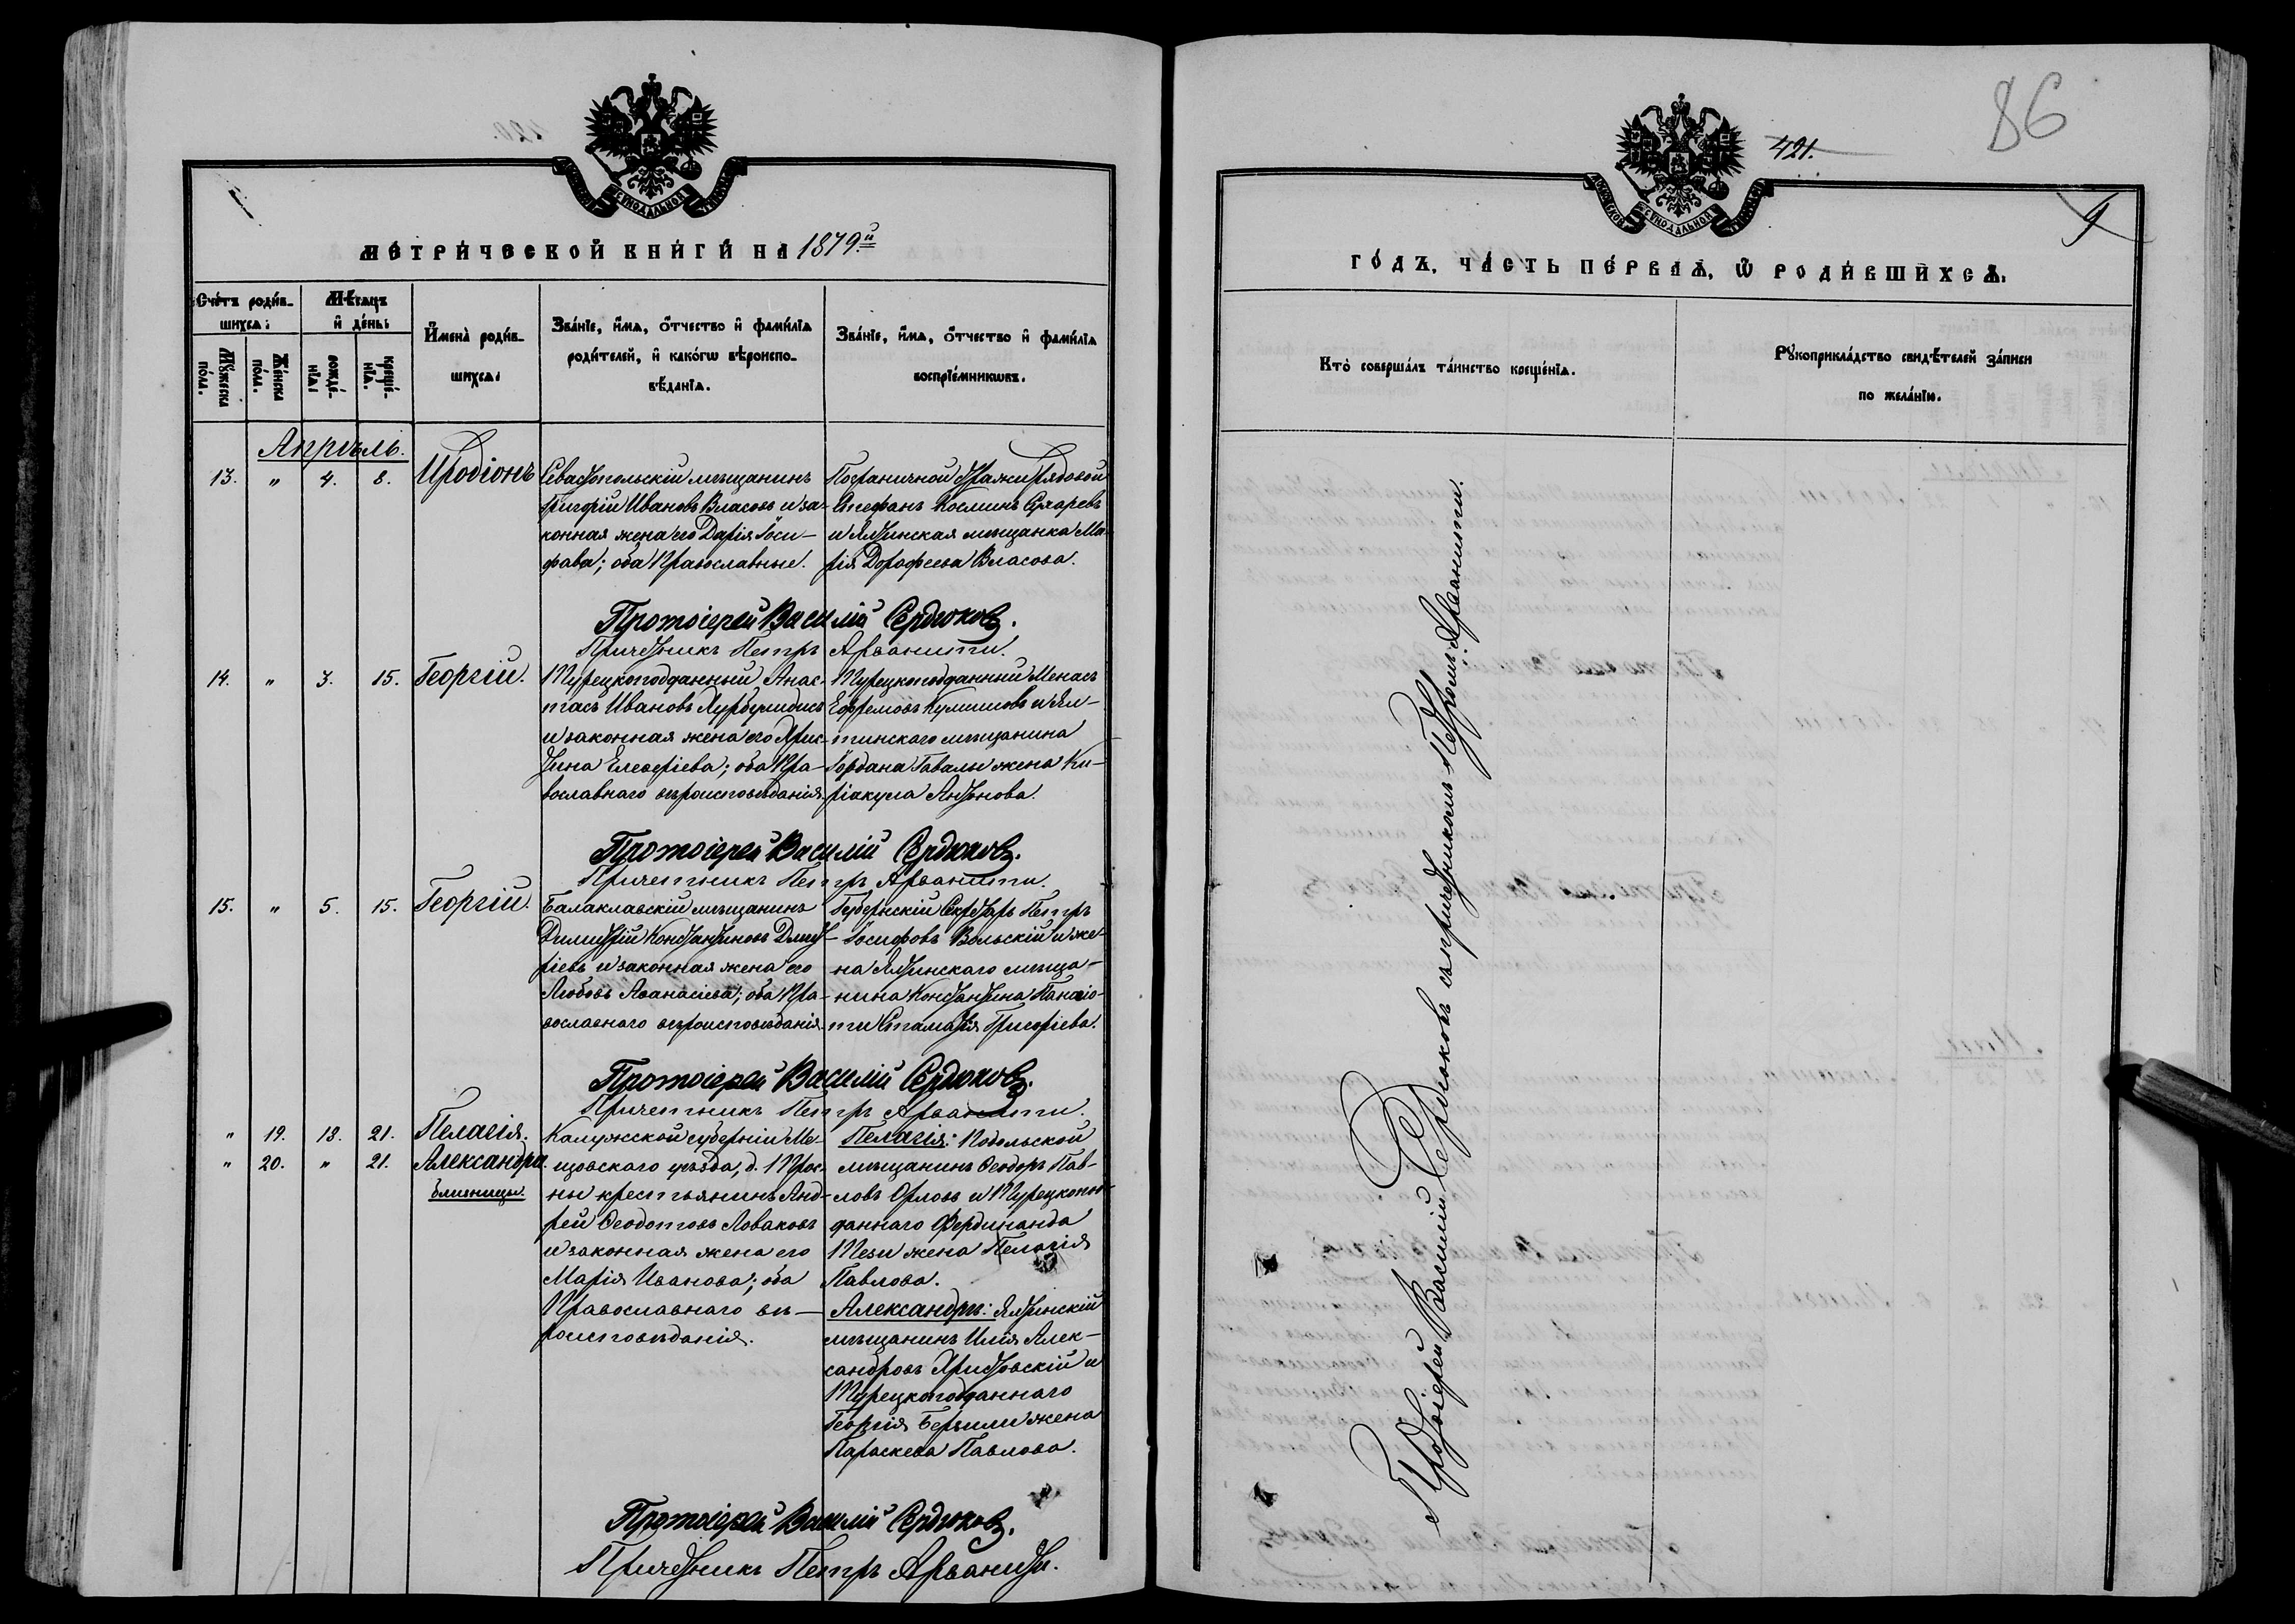 МОСКОВСКОЙ СѴНОДАЛЬНОЙ ТИПОГРАФІИ
МЕТРИЧЕСКОЙ КНИГИ НА 1879й
Счетъ родив-
шихся:
Мѣсяцъ
и день:
Мужеска
пола.
Женска
пола.
рожде-
нія:
креще-
нія.
Имена родив-
шихся:
Званіе, имя, отчество и фамилія
родителей, и какогѡ вѣроиспо-
вѣданія.
Званіе, имя, отчество и фамилія
воспріемникѡвъ.
Апрѣль.
13. " 4. 8. Иродіонъ
Севастопольскій мѣщанинъ
Григорій Ивановъ Власовъ и за-
конная жена его Дарія Іоси-
фова; оба Православные.
Пограничной стражи рядовой
Стефанъ Косминъ Сухаревъ
и Ялтинская мѣщанка Ма-
рія Дорофеева Власова.
Протоіерей Василій Сердюковъ.
Причетникъ Петръ Арванити.
14. " 3. 15. Георгій.
Турецкоподданный Анас-
тасъ Ивановъ
и законная жена его Хрис-
тина Елевферіева; оба Пра-
вославнаго вѣроисповѣданія.
Турецкоподданный Менасъ
Ефремовъ и Ял-
тинскаго мѣщанина
Іордана Гавалы жена Ки-
ріакула Антонова.
Протоіерей Василій Сердюковъ.
Причетникъ Петръ Арванити.
15. " 5. 15. Георгій.
Балаклавскій мѣщанинъ
Димитрій Константиновъ Димит-
ріевъ и законная жена его
Любовь Аѳанасіева; оба Пра-
вославнаго вѣроисповѣданія.
Губернскій Секретарь Петръ
Іосифовъ Вольскій и же-
на Ялтинскаго мѣща-
нина Константина Панаіо-
ти Стаматія Григоріева.
Протоіерей Василій Сердюковъ.
Причетникъ Петръ Арванити.
" 19. 18. 21. Пелагія.
" 20. " 21. Александра
близницы.
Калужской губерніи Ме-
щовскаго уѣзда, д. Прос-
ны крестьянинъ Анд-
рей Ѳеодотовъ Новаковъ
и законная жена его
Марія Иванова; оба
Православнаго вѣ-
роисповѣданія.
Пелагія: Подольской
мѣщанинъ Ѳеодоръ Пав-
ловъ Орловъ и Турецкопод-
даннаго Фердинанда
Тези жена Пелагія
Павлова.
Александры: Ялтинскій
мѣщанинъ Илія Алек-
сандровъ Христовскій и
Турецкоподданнаго
Георгія жена
Параскева Павлова.
Протоіерей Василій Сердюковъ.
Причетникъ Петръ Арванити.
86
421.
МОСКОВСКОЙ СѴНОДАЛЬНОЙ ТИПОГРАФІИ
ГОДЪ, ЧАСТЬ ПЕРВАЯ, Ѡ РОДИВШИХСЯ.
Кто совершалъ таинство крещенія.
Рукоприкладство свидѣтелей записи
по желанію.
Протоіерей Василій Сердюковъ съ причетникомъ Петромъ Арванити.